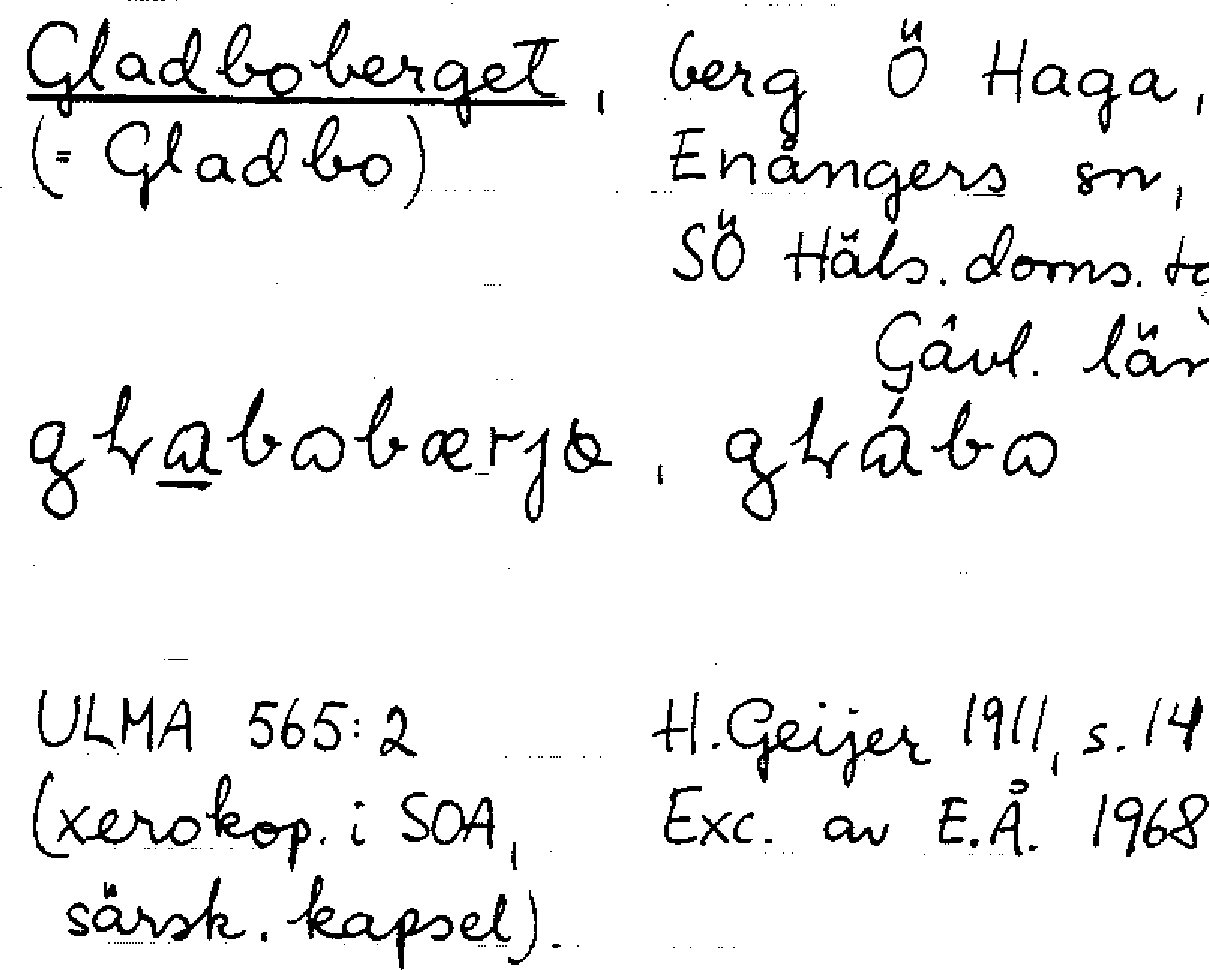 Gladboberget, berg Ö Haga,
(= Gladbo) Enångers sn,
SÖ Häls. doms.
Gävl. län
ULMA 565:2 H. Geijer 1911, s. 14
(xerokop. i SOA, Exc. av E.Å. 1968
särsk. kapsel).